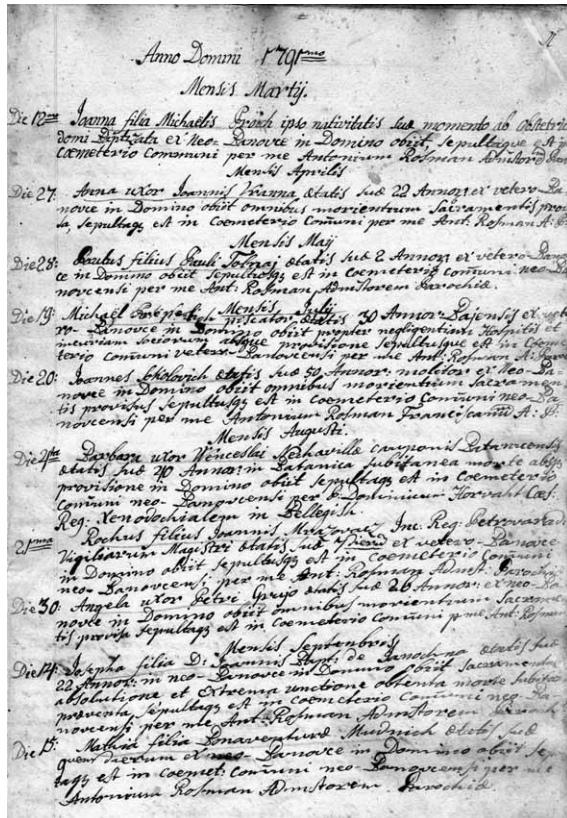 Anno Domini 1791mo
Mensis Martij.
Die 12ma Joanna filia Michaelis ipso nativitatis suæ momento ab obstetrice
domi Baptizata ex Neo-Banovce in Domino obiit, Sepultaque est in
Coemeterio Communi per me Antonium Rosman Admstord
Mensis Aprilis
Die 27. Anna uxor Joannis Vranna, ætatis suæ 22 Annor: ex vetero-Ba-
novce in Domino obiit omnibus morientium Sacramentis provi-
sa, sepultaq3 est in Coemeterio Comuni per me Ant: Rosman A: P:
Mensis Maij
Die 28: Paulus filius Pauli ætatis suæ 2 Annor: ex vetero-Banov-
ce in Domino obiit Sepultusq3 est in coemeterio comuni neo-Ba-
novcensi per me Ant: Rosman Admstorem Parochiæ.
Mensis Julij
Die 19: Michael piscator ætatis 30 Annor: Bajensis ex vete-
ro-Banovce in Domino obiit propter negligentiam Hospitis et
incuriam sociorum absque provisione Sepultusque est in Coeme-
terio comuni vetero-Banovcensi per me Ant: Rosman A: Paroch
Die 20: Joannes ætatis suæ 50 Annor: molitor ex Neo-Ba-
novce in Domino obiit omnibus morientium Sacramen-
tis provisus Sepultusq3 est in Coemeterio Comuni neo-Ba-
novcensi per me Antonium Rosman Franciscanū A: P:
Mensis Augusti.
Die 4ta Barbara uxor Wenceslai cauponis
ætatis suæ 20 Annor: in Batanica Subitanea morte absq3
provisione in Domino obiit Sepultaq3 est in Coemeterio
Comuni neo-Banovcensi per Dominicum Horvaht Cæs:
Reg: in
Rochus filius Joannis Inc: Reg:
Vigiliarum Magistri ætatis suæ ex vetero-Banovce
in Domino obiit Sepultusq3 est in coemeterio Comuni
neo-Banovcensi per me Ant: Rosman Admst: Parochiæ
Die 30: Angela uxor Petri ætatis suæ 26 Annor: ex neo-Ba-
novce in Domino obiit omnibus morientium Sacramen-
tis provisa Sepultaq3 est in Coemeterio Comuni p me Ant: Rosman
Mensis Septenbris
Die 14: Josepha filia D: Joannis Bapt: de ætatis suæ
22 Annor: in neo-Banovce in Domino obiit Sacramentali
absolutione et Extrema unctione obtenta morte Subitan
præventa, Sepultaq3 est in coemeterio Comuni neo-Ba-
novcensi per me Ant: Rosman Admstorem Paroch
Die 15: filia Bonaventuræ ætatis suæ
dierum ex neo-Banovce in Domino obiit Sepul-
taq3 est in Coemet: Comuni neo-Banovcensi per me
Antonium Rosman Admstorem Parochiæ